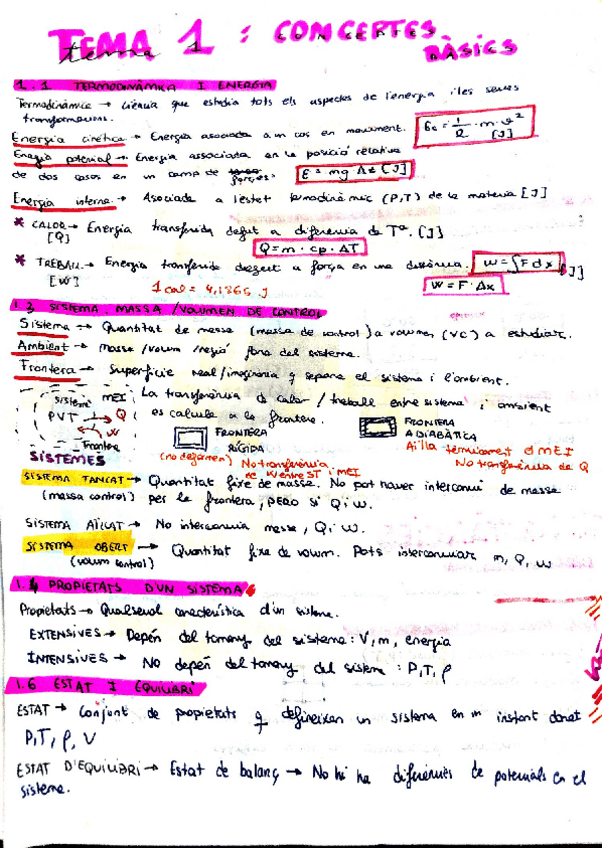 TEMA 1 : CONCEPTES BÀSICS
1.1 TERMODINÀMICA I ENERGIA
Termodinàmica → ciència que estudia tots els aspectes de l'energia i les seves
transformacions.
Energia cinètica → Energia associada a un cos en moviment. Ec = 1/2 · m · v² [J]
Energia potencial → Energia associada en la posició relativa
de dos cosos en un camp de forces. E = mg Δz [J]
Energia interna → Associada a l'estat termodinàmic (P,T) de la matèria [J]
* CALOR → Energia transferida degut a diferència de Tª. [J]
[Q] Q = m · cp · ΔT
* TREBALL → Energia transferida degut a força en una distància. W = ∫F dx [J]
[W] 1 cal = 4,1865 J W = F · Δx
1.3 SISTEMA, MASSA/VOLUMEN DE CONTROL
Sistema → Quantitat de massa (massa de control) o volumen (VC) a estudiar.
Ambient → Massa/volum/regió fora del sistema.
Frontera → Superfície real/imaginària q separa el sistema i l'ambient.
Sistema MEI La transferència de calor / treball entre sistema i ambient
PVT Q es calcula a la frontera.
W
Frontera
FRONTERA RÍGIDA
(no deformen) No transferència de W entre ST i MEI
FRONTERA ADIABÀTICA
Aïlla tèrmicament el MEI
No transferència de Q
SISTEMES
SISTEMA TANCAT → Quantitat fixe de massa. No pot haver intercanvi de massa
(massa control) per la frontera, PERO SI Q i W.
SISTEMA AÏLLAT → No intercanvia massa, Q i W.
SISTEMA OBERT → Quantitat fixe de volum. Pots intercanviar m, Q, W
(volum control)
1.4 PROPIETATS D'UN SISTEMA
Propietats → Qualsevol característica d'un sistema.
EXTENSIVES → Depèn del tamany del sistema: V, m, energia
INTENSIVES → No depèn del tamany del sistema: P, T, ρ
1.6 ESTAT I EQUILIBRI
ESTAT → Conjunt de propietats q defineixen un sistema en un instant donat
P, T, ρ, V
ESTAT D'EQUILIBRI → Estat de balanç → No hi ha diferències de potencials en el
sistema.